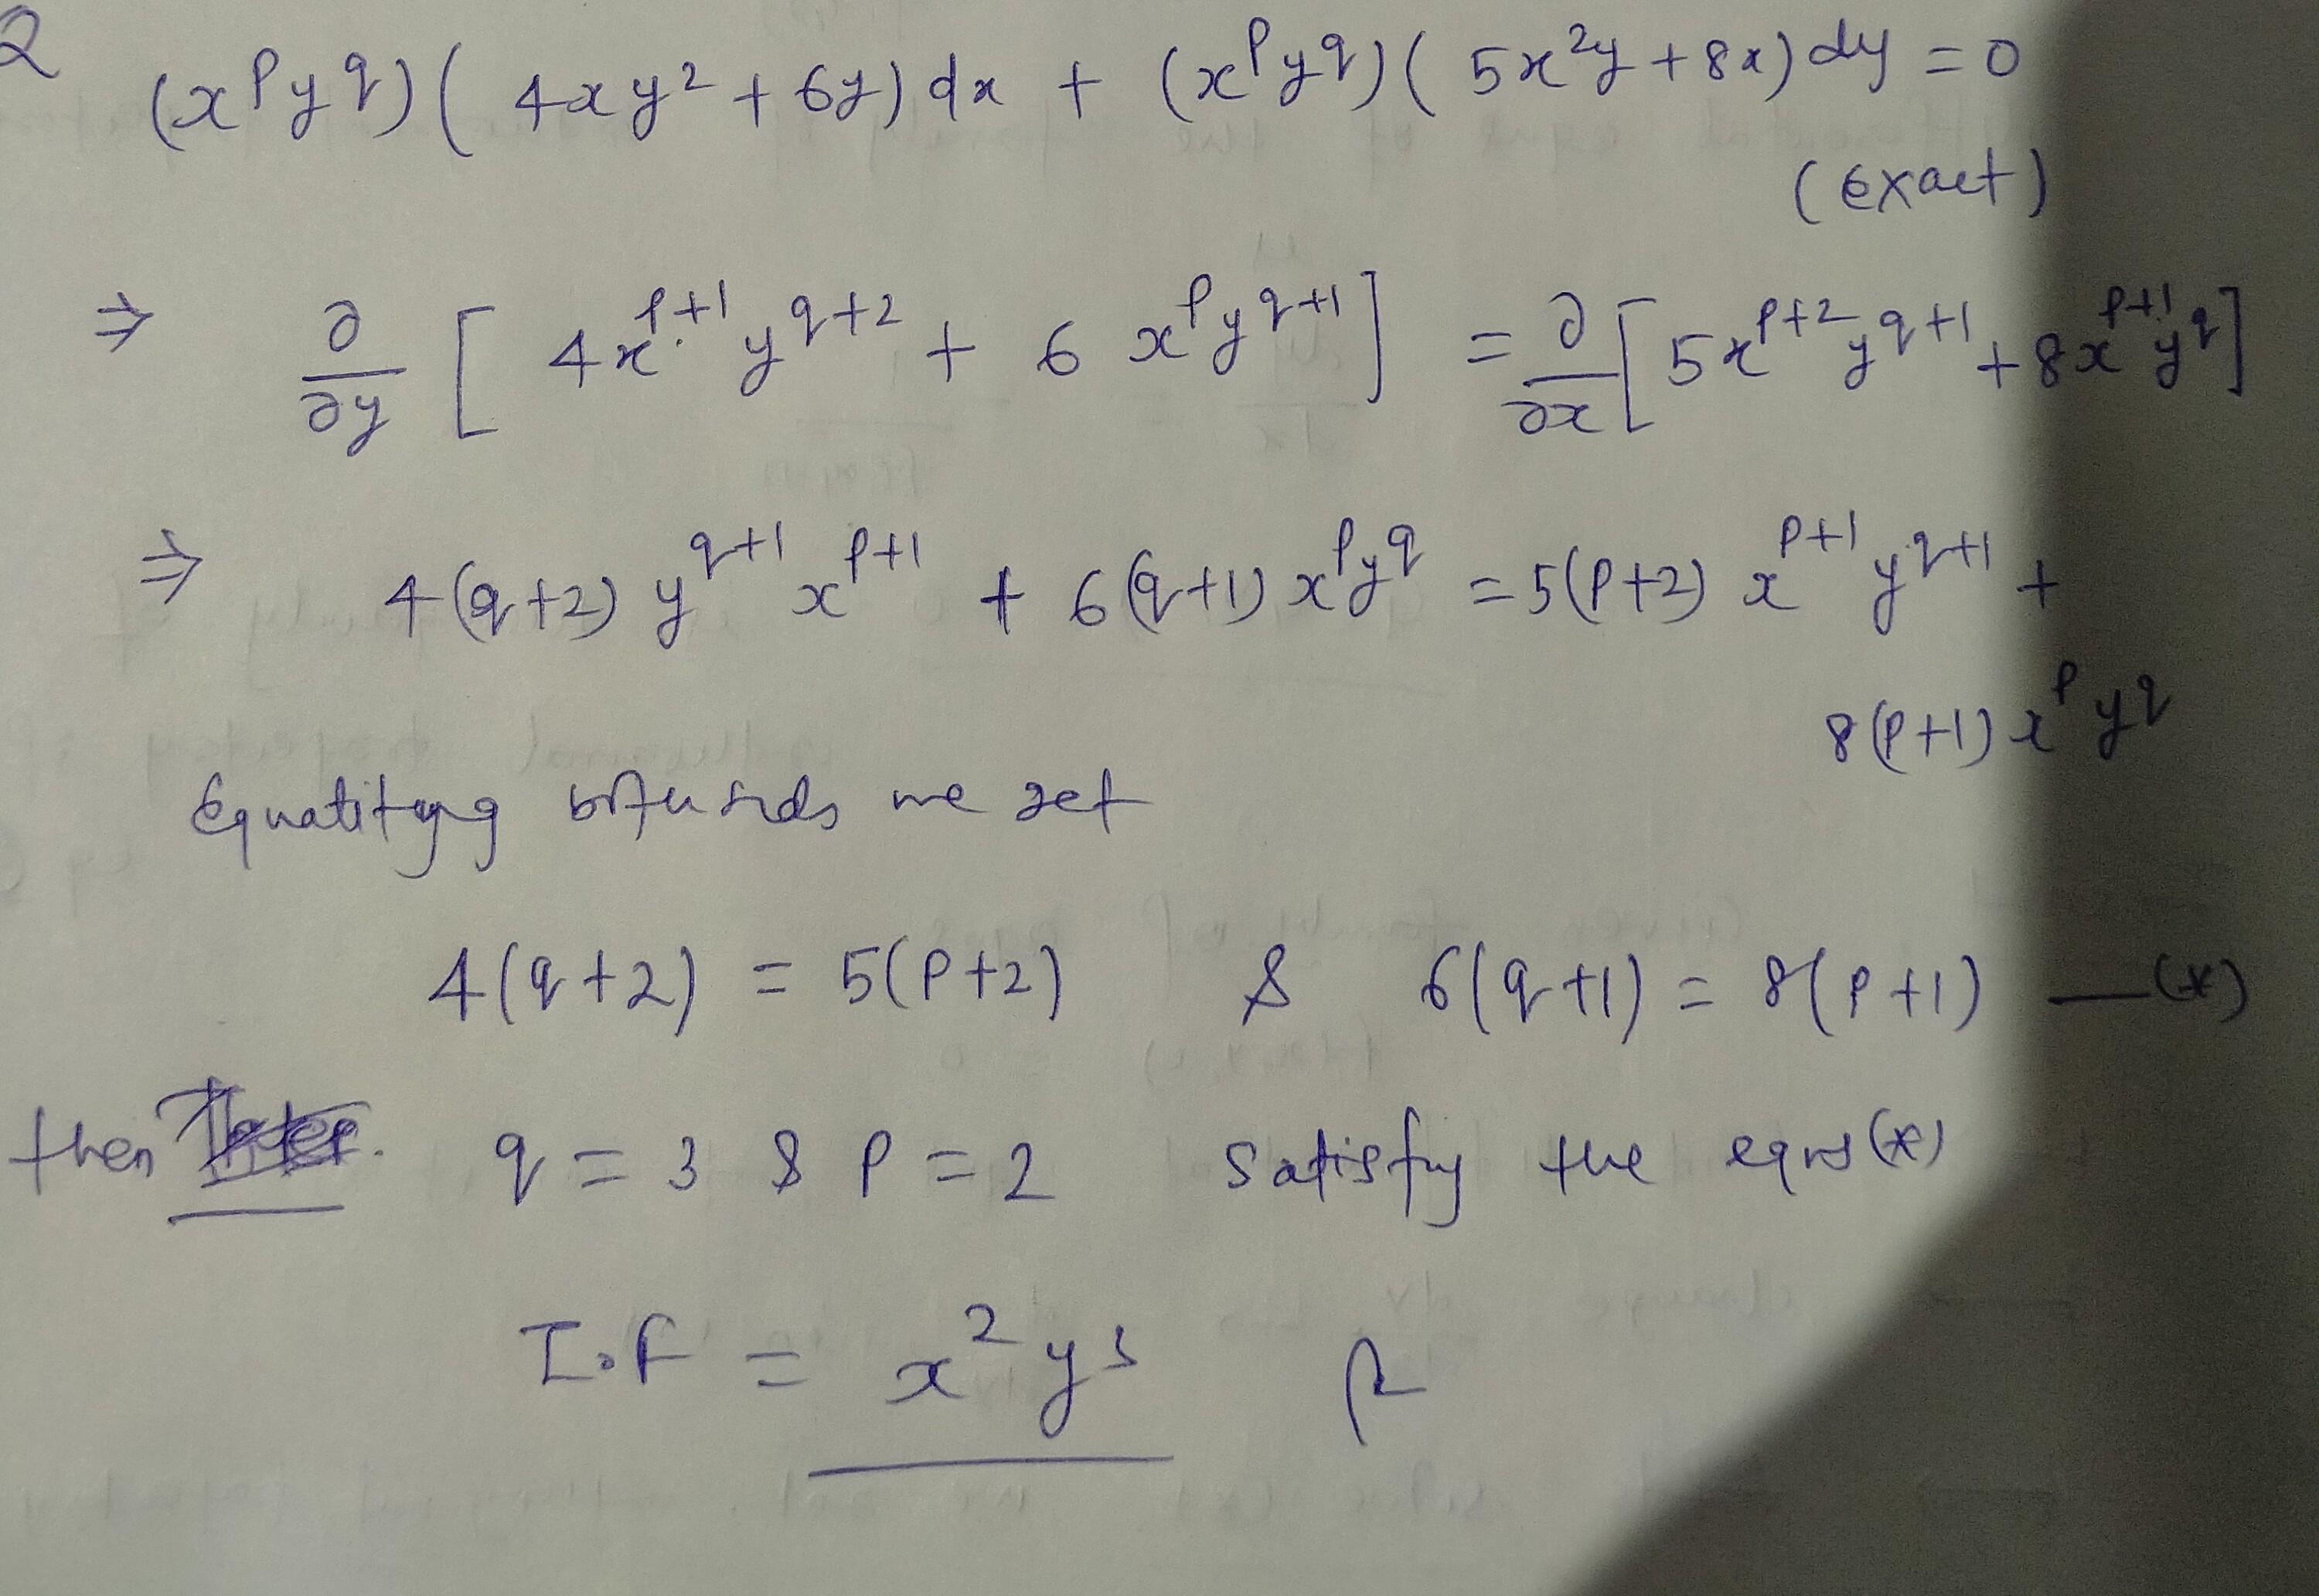 2
(x^p y^q)(4xy² + 6y)dx + (x^p y^q)(5x²y + 8x)dy = 0
(exact)
⇒ ∂/∂y [4x^{p+1} y^{q+2} + 6 x^p y^{q+1}] = ∂/∂x [5x^{p+2} y^{q+1} + 8x^{p+1} y^q]
⇒ 4(q+2) y^{q+1} x^{p+1} + 6(q+1) x^p y^q = 5(p+2) x^{p+1} y^{q+1} +
8(p+1) x^p y^q
we get
4(q+2) = 5(p+2) & 6(q+1) = 8(p+1) —(*)
then q = 3 & p = 2 satisfy the eqns (*)
I.F = x² y³